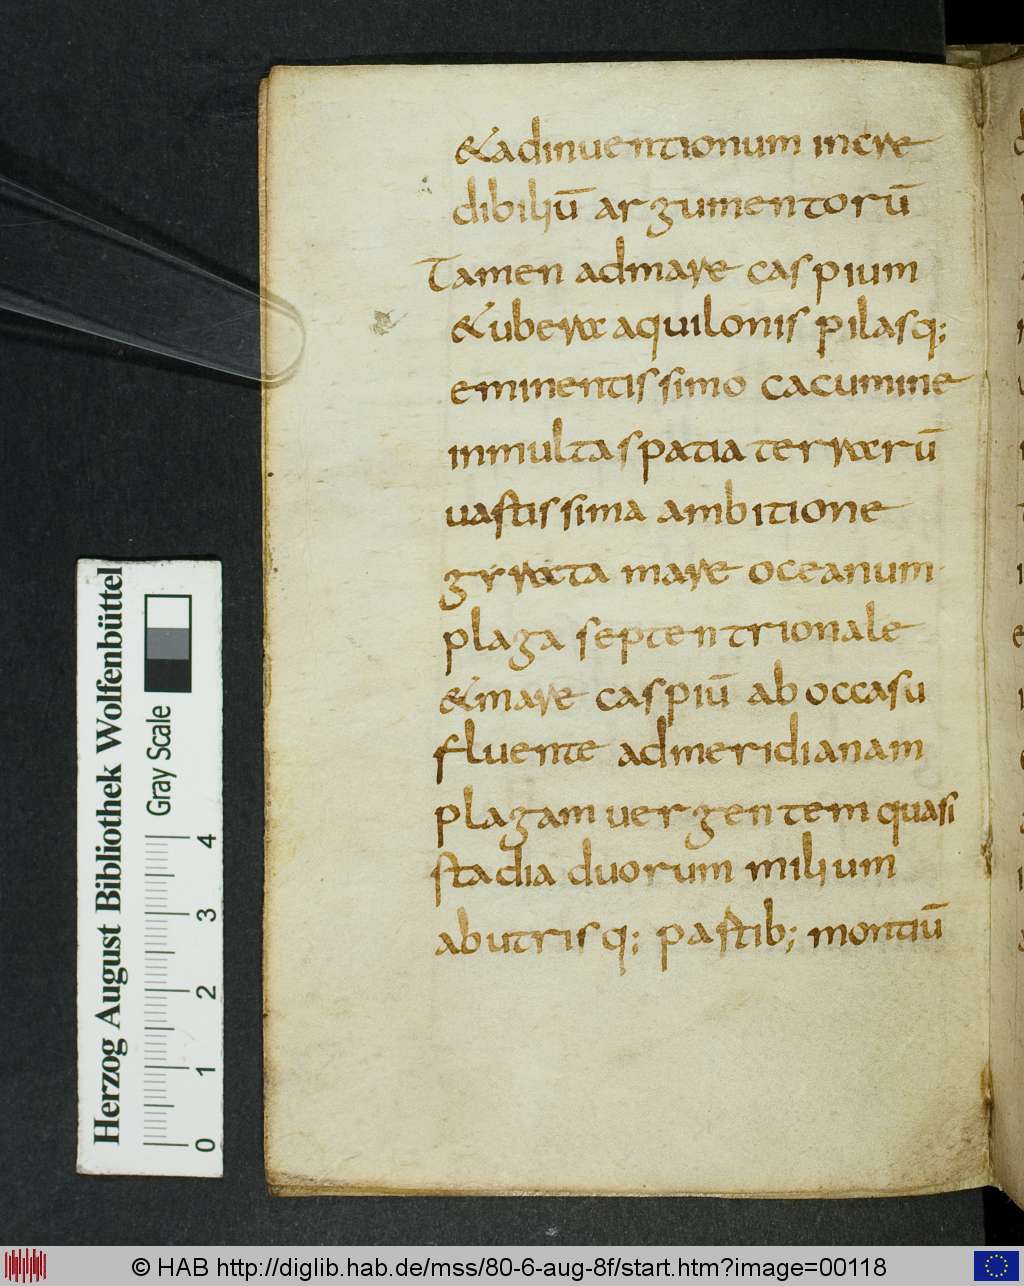 &adinuentionum incre
dibiliū argumentorū
Tamen admare caspium
&ubera aquilonis pilasq;
eminentissimo cacumine
inmulta spatia terrarū
uastissima ambitione
gyrata mare oceanum
plaga septentrionale
&mare caspiū ab occasu
fluente admeridianam
plagam uergentem quasi
stadia duorum milium
abutrisq; partib; montiū
Herzog August Bibliothek Wolfenbüttel
Gray Scale
0 1 2 3 4
© HAB http://diglib.hab.de/mss/80-6-aug-8f/start.htm?image=00118